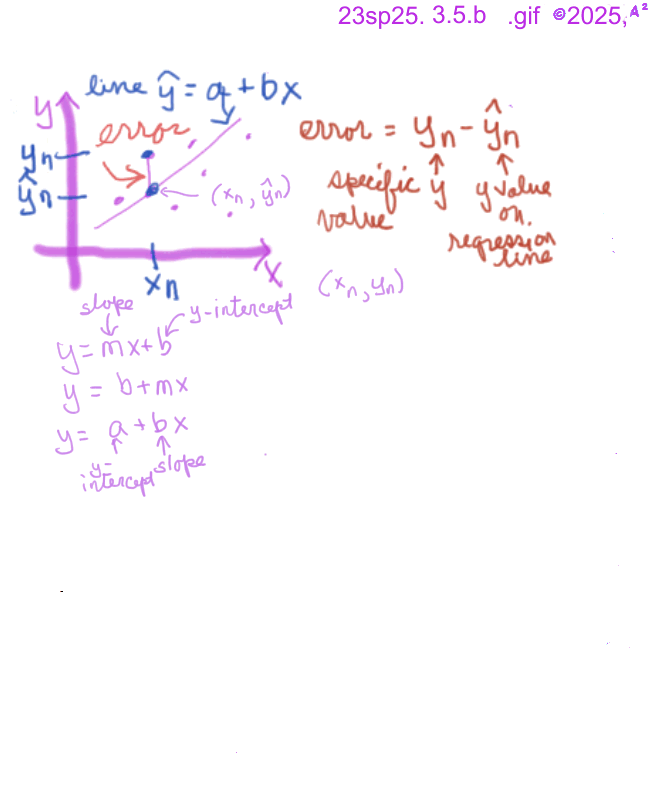 23sp25. 3.5.b .gif ©2025, A²
line ŷ = a + bx
y
error
error = yn − ŷn
yn
ŷn
(xn, ŷn)
specific y
value
y value
on.
regression
line
xn
x
(xn, yn)
slope
y-intercept
y = mx + b
y = b + mx
y = a + bx
y-
intercept
slope